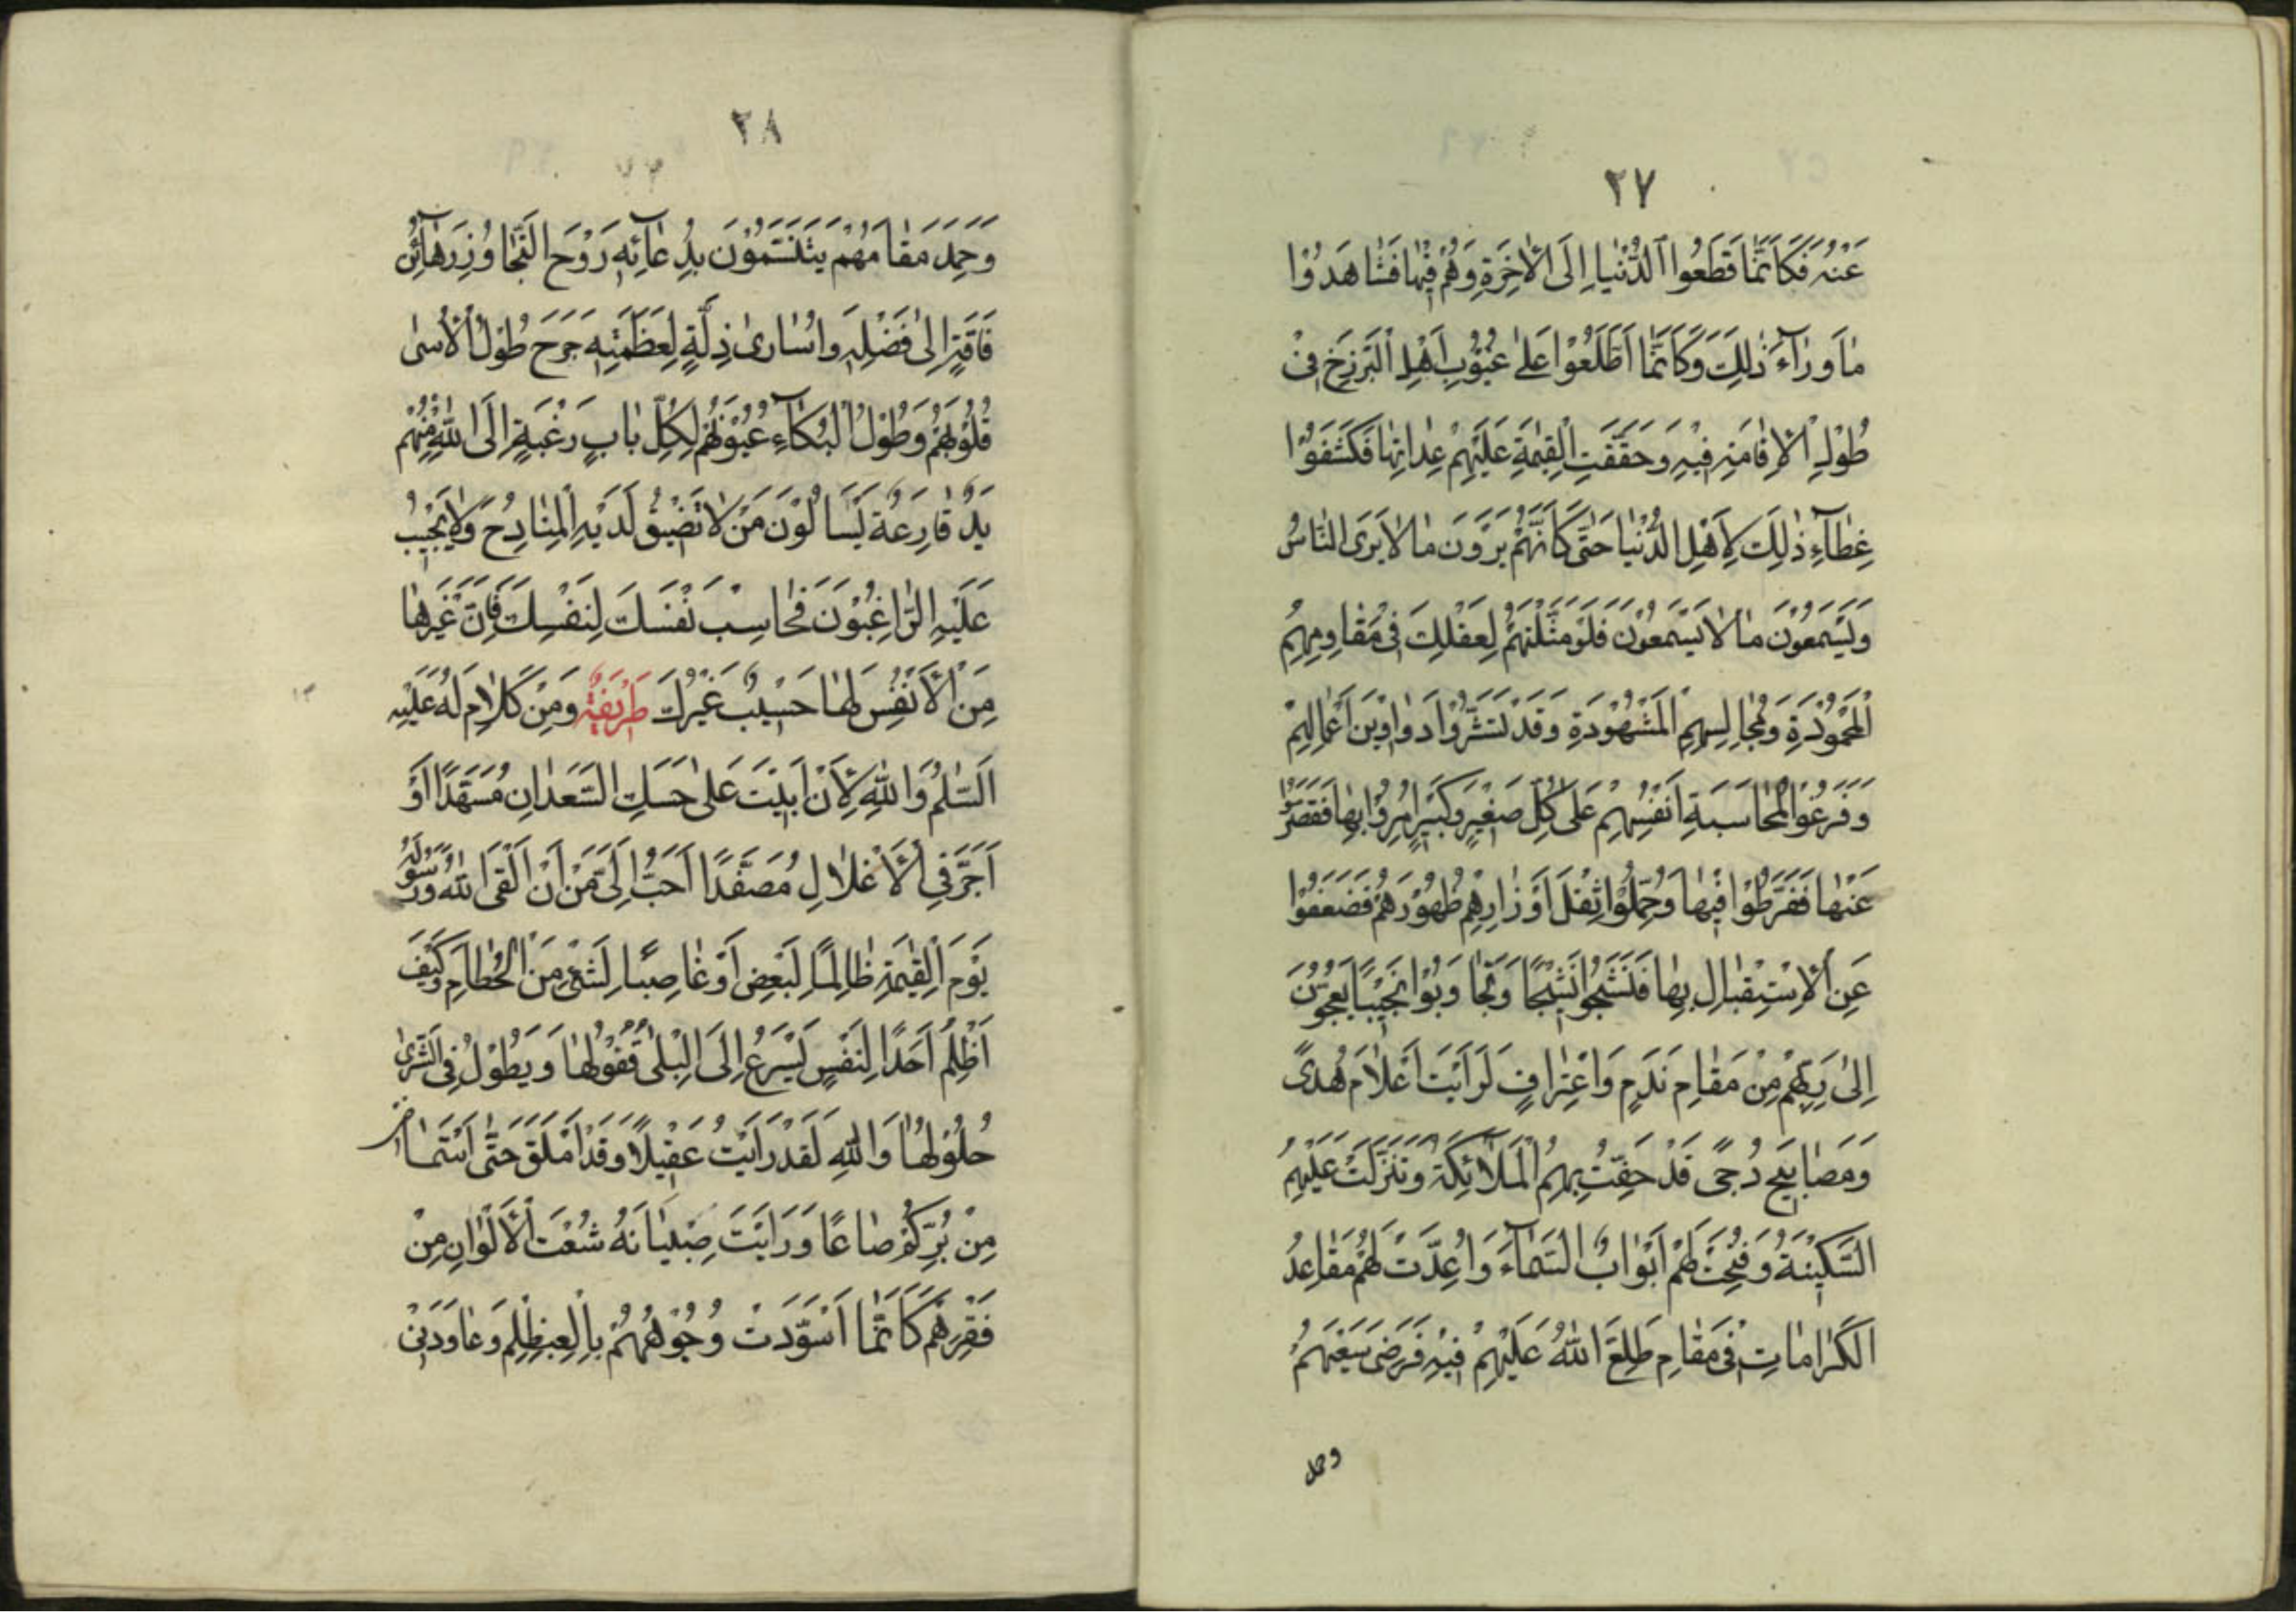 ٢٧
عَنْهُ فَكَاَنَّمٰا قَطَعُوا الدُّنْيٰا اِلَى الْاٰخِرَةِ وَهُمْ فِيْهٰا فَشٰاهَدُوْا
مٰا وَرٰآءَ ذٰلِكَ وَكَاَنَّمَا اطَّلَعُوْا عَلىٰ عُيُوْبِ اَهْلِ الْبَرْزَخِ فِىْ
طُوْلِ الْاِقٰامَةِ فِيْهِ وَحَقَّقَتِ الْقِيٰمَةِ عَلَيْهِمْ عِدٰاتِهٰا فَكَشَفُوْا
غِطٰآءِ ذٰلِكَ لِاَهْلِ الدُّنْيٰا حَتّٰى كَاَنَّهُمْ يَرَوْنَ مٰا لٰا يَرَى النّٰاسُ
وَيَسْمَعُوْنَ مٰا لٰا يَسْمَعُوْنَ فَلَوْ مَثَّلْتَهُمْ لِعَقْلِكَ فِىْ مَقٰاوِمِهِمُ
الْمَحْمُوْدَةِ وَمَجٰالِسِهِمِ الْمَشْهُوْدَةِ وَقَدْ نَشَرُوْا دَوٰاوِيْنَ اَعْمٰالِهِمْ
وَفَرَغُوْا لِمُحٰاسَبَةِ اَنْفُسِهِمْ عَلىٰ كُلِّ صَغِيْرٍ وَكَبِيْرٍ اُمِرُوْا بِهٰا فَقَصَّرُوْا
عَنْهٰا فَفَرَّطُوْا فِيْهٰا وَحُمِّلُوْا ثِقْلَ اَوْزٰارِهِمْ ظُهُوْرَهُمْ فَضَعُفُوْا
عَنِ الْاِسْتِقْبٰالِ بِهٰا فَنَشَجُوْا نَشِيْجًا وَتَجٰاوَبُوْا نَحِيْبًا يَعِجُّوْنَ
اِلىٰ رَبِّهِمْ مِنْ مَقٰامِ نَدَمٍ وَاعْتِرٰافٍ لَرَاَيْتَ اَعْلٰامَ هُدًى
وَمَصٰابِيْحَ دُجًى قَدْ حَفَّتْ بِهِمُ الْمَلٰآئِكَةُ وَتَنَزَّلَتْ عَلَيْهِمُ
السَّكِيْنَةُ وَفُتِحَتْ لَهُمْ اَبْوٰابُ السَّمٰآءِ وَاُعِدَّتْ لَهُمْ مَقٰاعِدُ
الْكَرٰامٰاتِ فِىْ مَقٰامٍ طَلِعَ اللّٰهُ عَلَيْهِمْ فِيْهِ فَرَضِىَ سَعْيَهُمْ
وحمد
٢٨
وَحَمِدَ مَقٰامَهُمْ يَتَنَسَّمُوْنَ بِدُعٰآئِهِ رَوْحَ التَّجٰاوُزِ رَهٰآئِنُ
فَاقَةٍ اِلىٰ فَضْلِهِ وَاُسٰارىٰ ذِلَّةٍ لِعَظَمَتِهِ جَرَحَ طُوْلُ الْاَسىٰ
قُلُوْبَهُمْ وَطُوْلُ الْبُكٰآءِ عُيُوْنَهُمْ لِكُلِّ بٰابِ رَغْبَةٍ اِلَى اللّٰهِ مِنْهُمْ
يَدٌ قٰارِعَةٌ يَسْاَلُوْنَ مَنْ لٰا تَضْيْقُ لَدَيْهِ الْمَنٰادِحُ وَلٰا يَخْيْبُ
عَلَيْهِ الرّٰاغِبُوْنَ فَحٰاسِبْ نَفْسَكَ لِنَفْسِكَ فَاِنَّ غَيْرَهٰا
مِنَ الْاَنْفُسِ لَهٰا حَسِيْبٌ غَيْرُكَ طَرِيْفَةٌ وَمِنْ كَلٰامٍ لَهُ عَلَيْهِ
السَّلٰمُ وَاللّٰهِ لَاَنْ اَبِيْتَ عَلىٰ حَسَكِ السَّعْدٰانِ مُسَهَّدًا اَوْ
اُجَرَّ فِى الْاَغْلٰالِ مُصَفَّدًا اَحَبُّ اِلَىَّ مِنْ اَنْ اَلْقَى اللّٰهَ وَرَسُوْلَهُ
يَوْمَ الْقِيٰمَةِ ظٰالِمًا لِبَعْضِ اَوْ غٰاصِبًا لِشَىْءٍ مِنَ الْحُطٰامِ وَكَيْفَ
اَظْلِمُ اَحَدًا لِنَفْسٍ يُسْرِعُ اِلَى الْبِلىٰ قُفُوْلُهٰا وَيَطُوْلُ فِى الثَّرىٰ
حُلُوْلُهٰا وَاللّٰهِ لَقَدْ رَاَيْتُ عَقِيْلًا وَقَدْ اَمْلَقَ حَتَّى اسْتَمٰاحَنِىْ
مِنْ بُرِّكُمْ صٰاعًا وَرَاَيْتُ صِبْيٰانَهُ شُعْثَ الْاَلْوٰانِ مِنْ
فَقْرِهِمْ كَاَنَّمَا اسْوَدَّتْ وُجُوْهُهُمْ بِالْعِظْلِمِ وَعٰاوَدَنِىْ